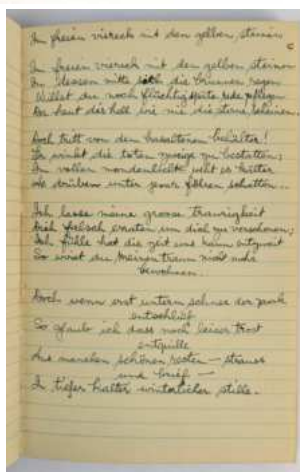 Im freien viereck mit den gelben steinen
6
Im freien viereck mit den gelben steinen
In dessen mitte sich die brunnen regen
Willst du noch flüchtig späte rede pflegen
Da heut dir hell wie nie die sterne scheinen.
Doch tritt von dem basaltenen behälter!
Er winkt die toten zweige zu bestatten;
Im vollen mondenlichte weht es kälter
Als drüben unter jener föhren schatten..
Ich lasse meine grosse traurigkeit
Dich falsch erraten um dich zu verschonen;
Ich fühle hat die zeit uns kaum entzweit
So wirst du meinen traum nicht mehr
bewohnen.
Doch wenn erst unterm schnee der park
entschlief
So glaub ich dass noch leiser trost
entquille
Aus manchen schönen resten — strauss
und brief —
In tiefer kalter winterlicher stille.